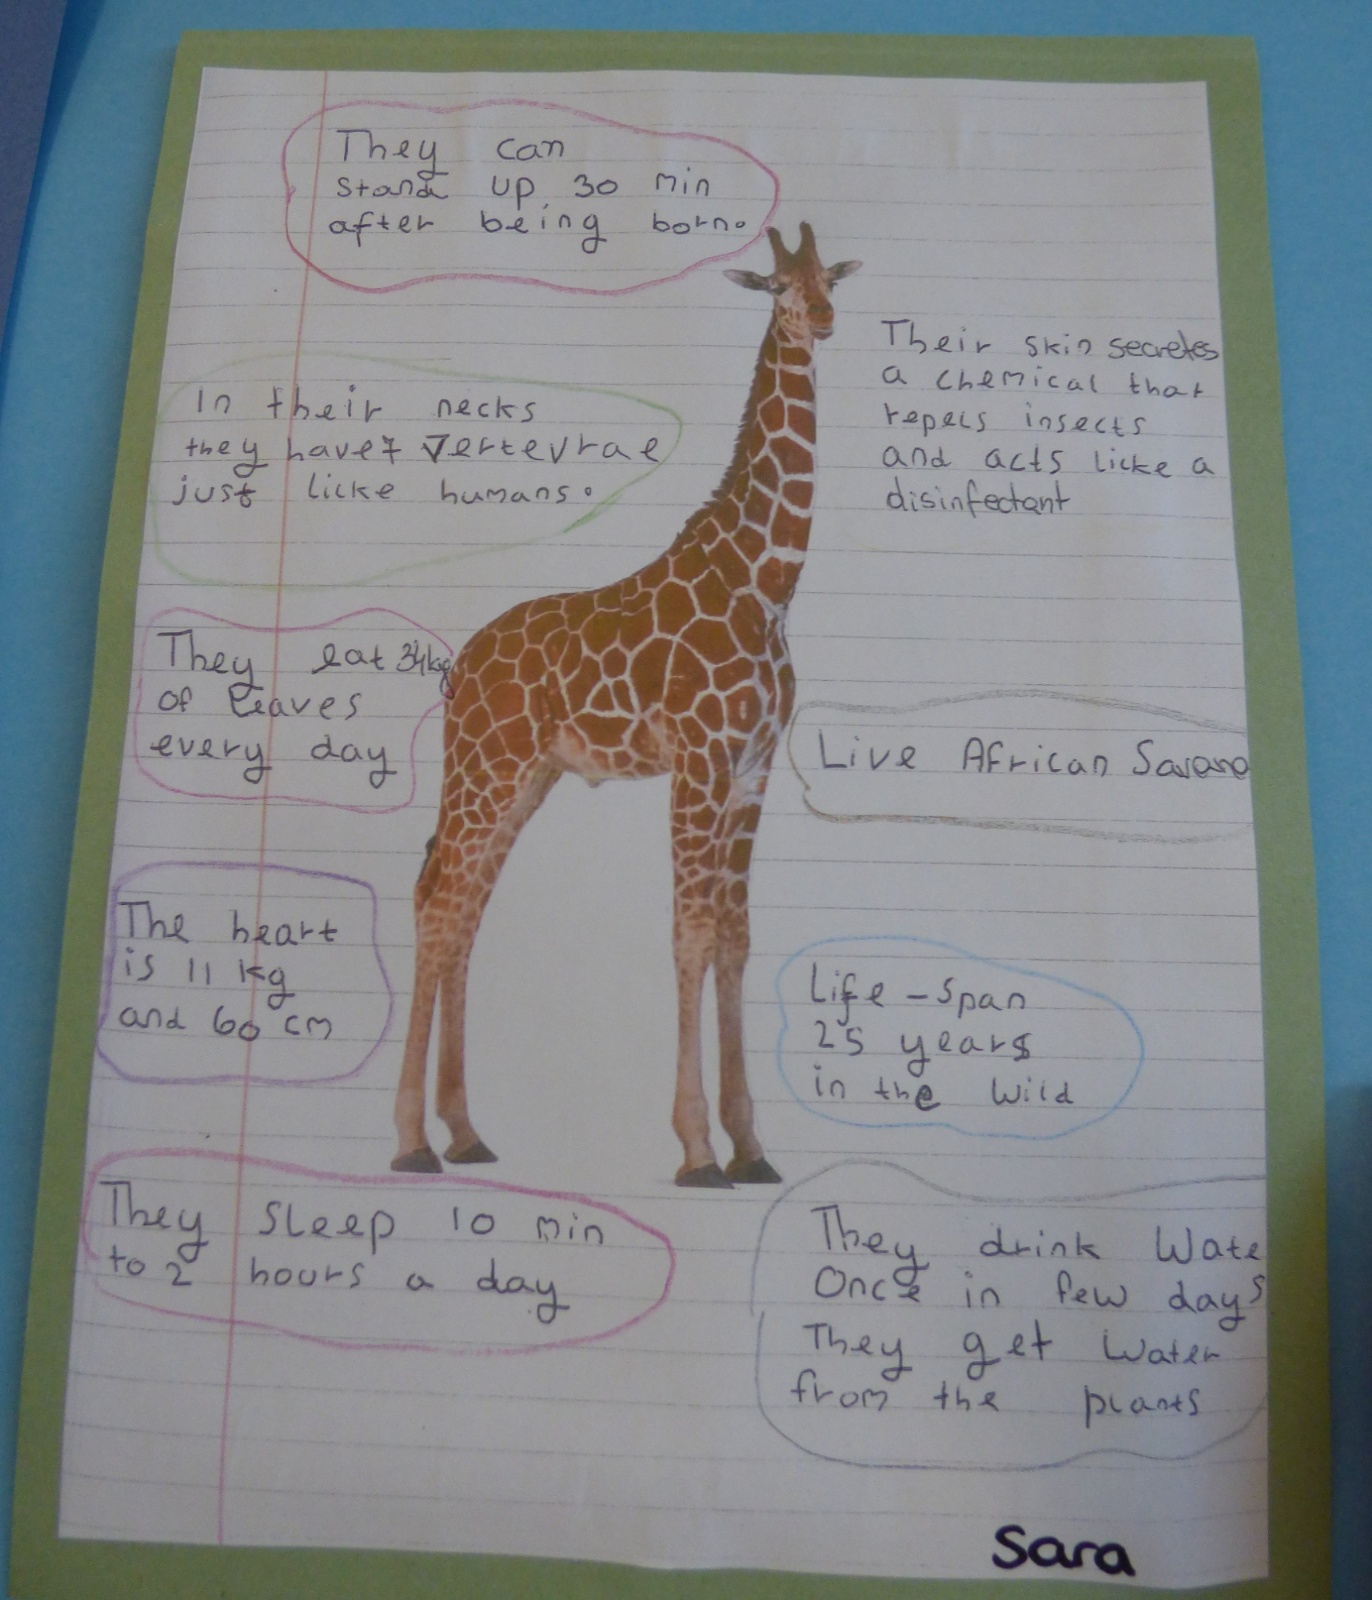 They can
stand up 30 min
after being born.
In their necks
they have 7 vertevrae
just licke humans.
Their skin secretes
a chemical that
repels insects
and acts licke a
disinfectant
They eat 34kg
of leaves
every day
Live African Savana
The heart
is 11 kg
and 60 cm
Life-span
25 years
in the wild
They sleep 10 min
to 2 hours a day
They drink Wate
Once in few days
They get water
from the plants
Sara